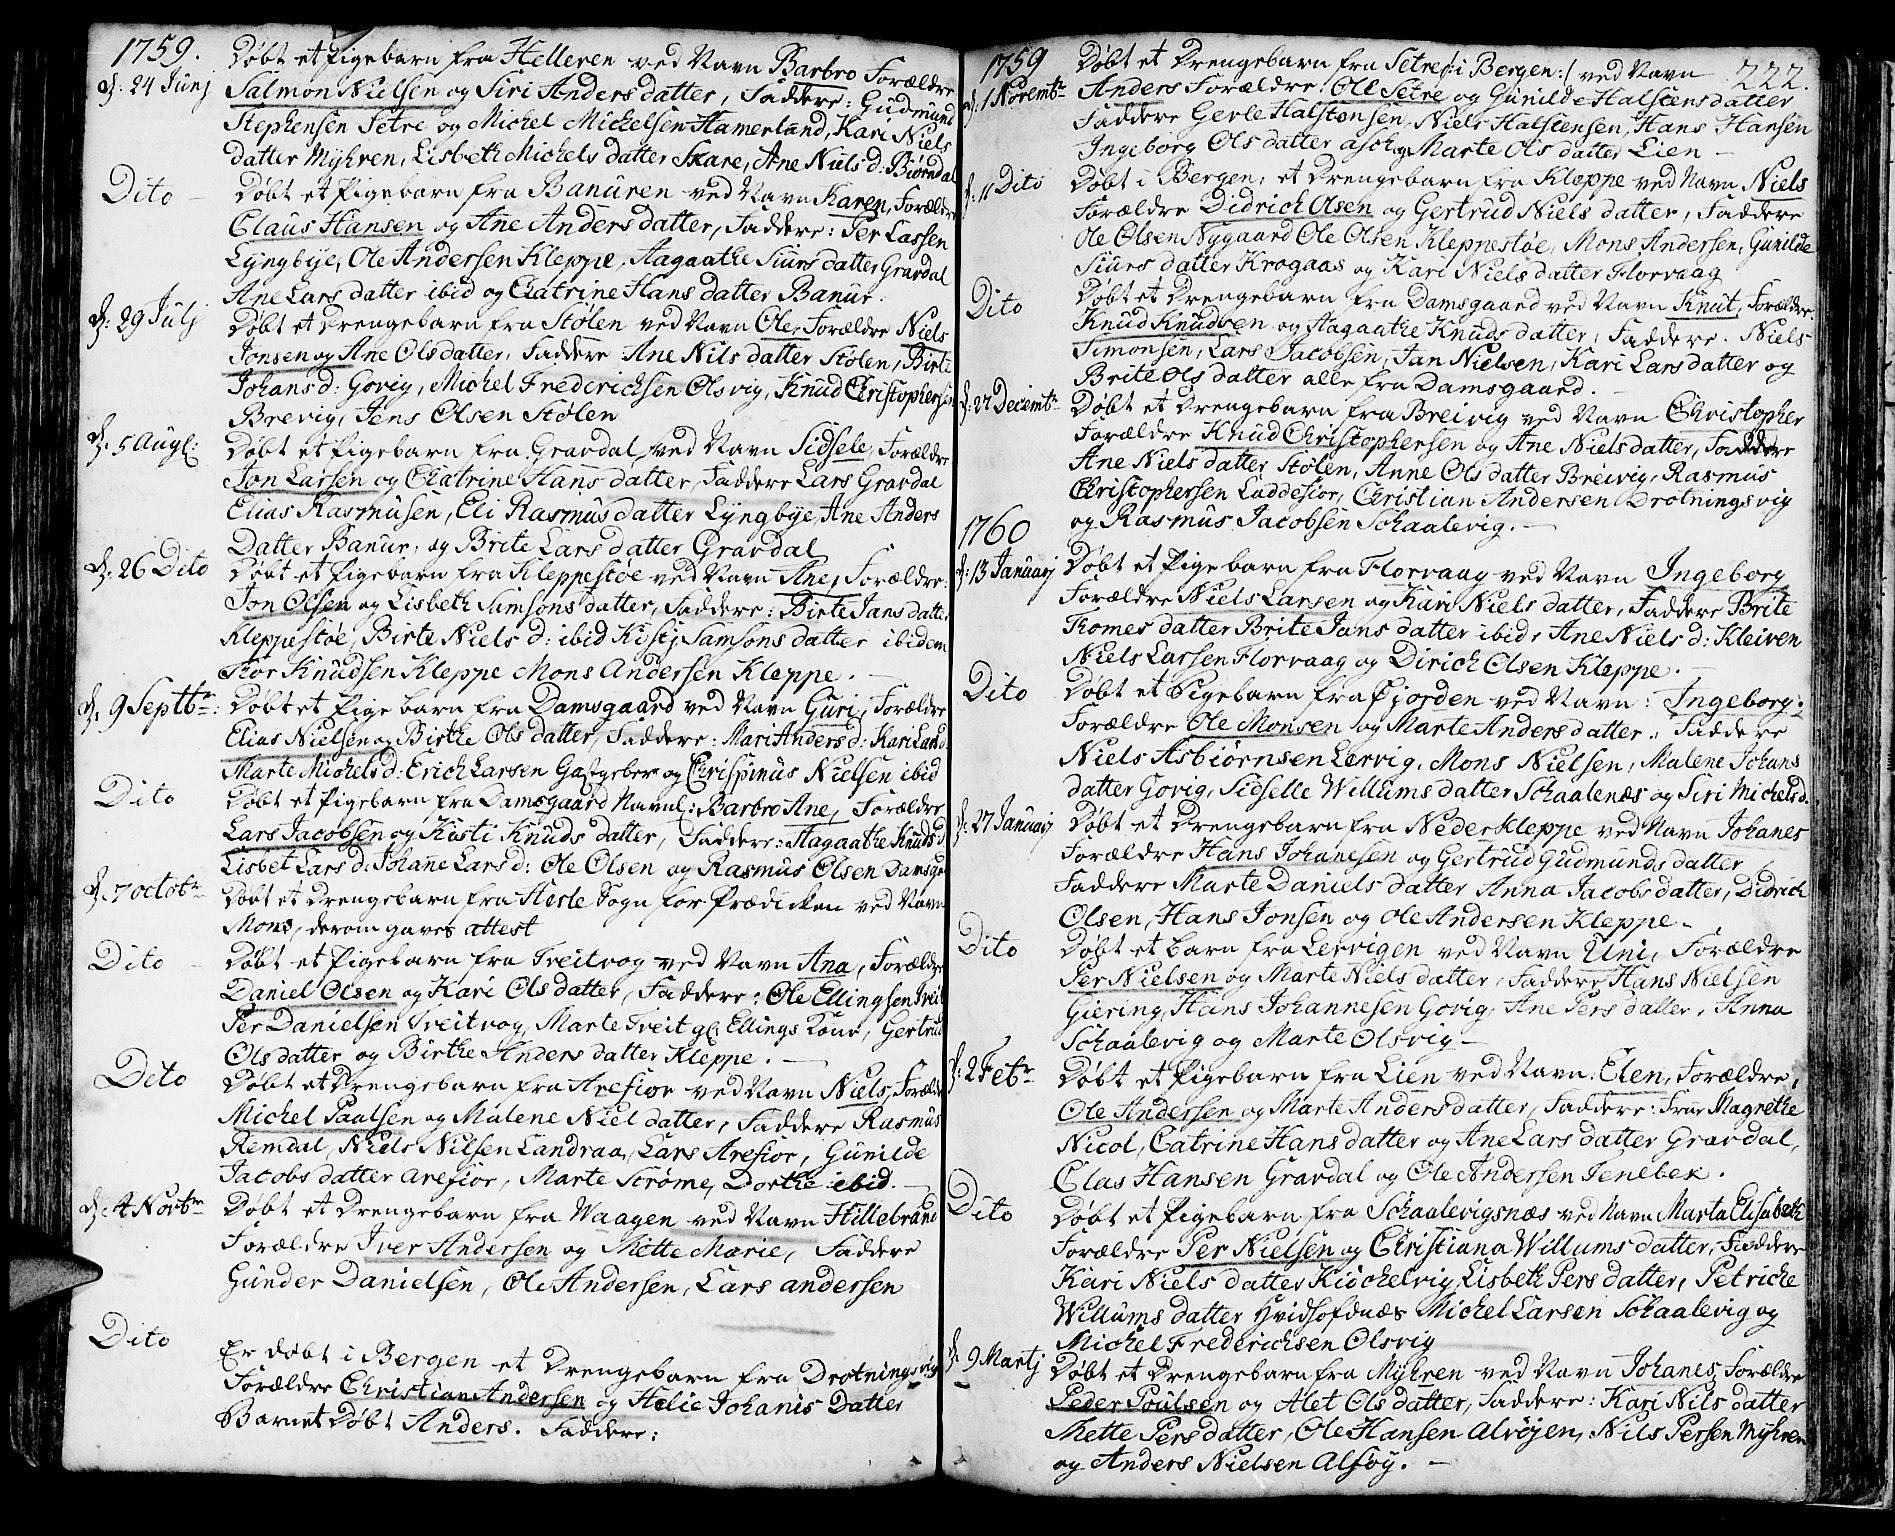 1759.
d. 24 Junj
Døbt et Pigebarn fra Helleren ved Navn Barbro Forældre
Salmon Nielsen og Siri Anders datter, Faddere: Gudmund
Stephensen Setre og Michel Michelsen Hamerland, Kari Niels
datter Myhren, Lisbeth Michels datter Skare, Ane Niels d: Biørndal
Dito
Døbt et Pigebarn fra Banuren ved Navn Karen, Forældre
Claus Hansen og Ane Anders datter, Faddere: Per Lassen
Lyngbye, Ole Andersen Kleppe, Aagaathe Siurs datter Gravdal
Ane Lars datter ibid og Catrine Hans datter Banur.
d. 29 Julj
Døbt et Drengebarn fra Stølen ved Navn Ole, Forældre Niels
Jonsen og Ane Ols datter, Faddere Ane Nils datter Stølen, Birte
Johans d: Govig, Michel Frederichsen Olsvig, Knud Christophersen
Brevig, Jens Olsen Stølen
d. 5 Aug:
Døbt et Pigebarn fra Gravdal, ved Navn Sidsele, Forældre
Jon Larsen og Catrine Hans datter, Faddere Lars Gravdal
Elias Rasmusen, Eli Rasmus datter Lyngbye, Ane Anders
Datter Banur, og Brite Lars datter Gravdal
d. 26 Dito
Døbt et Pigebarn fra Kleppestøe ved Navn Ane, Forældre
Jon Olsen og Lisbeth Samsons datter, Faddere: Birte Jans datter
Kleppestøe, Birte Niels d: ibid Kisti Samsons datter ibidem
Thor Knudsen Kleppe Mons Andersen Kleppe.
d. 9 Septbr:
Døbt et Pige barn fra Damsgaard ved Navn Guri, Forældre
Elias Nielsen og Birthe Ols datter, Faddere: Mari Anders d: Kari Lars d.
Marte Michels d: Erich Larsen Gastgeber og Chrispinus Nielsen ibid
Dito
Døbt et Pigebarn fra Damsgaard Navnl: Barbro Ane, Forældre
Lars Jacobsen og Kisti Knuds datter, Faddere: Aagaathe Knuds d
Lisbet Lars d. Johane Lars d: Ole Olsen og Rasmus Olsen Damsg:
d. 7 octobr
Døbt et Drengebarn fra Herle Sogn for Prædicken ved Navn
Mons, derom gaves attest
Dito
Døbt et Pigebarn fra Treitvog ved Navn Ana, Forældre
Daniel Olsen og Kari Ols datter, Faddere: Ole Ellingsen Treit
Per Danielsen Treitvog, Marte Treit og Ellings Kone, Gertrud
Ols datter og Birthe Anders datter Kleppe.
Dito
Døbt et Drengebarn fra Arefior ved Navn Niels, Forældre
Michel Paalsen og Malene Niel datter, Faddere Rasmus
Remdal, Niels Nilsen Landraa, Lars Arefior, Gunilde
Jacobs datter Arefior, Marte Strøme, Dorthe ibid.
d. 4 Novbr
Døbt et Drengebarn fra Waagen ved Navn Hillebrand
Forældre Iver Andersen og Mette Marie, Faddere
Gunder Danielsen, Ole Andersen, Lars andersen
Dito
Er døbt i Bergen et Drengebarn fra Drotningsvig
Forældre Christian Andersen og Helie Johanis Datter
Barnet Døbt Anders. Faddere:
1759
222.
d. 1 Novembr
Døbt et Drengebarn fra Setre /:i Bergen:/ ved Navn
Anders Forældre: Ole Setre og Gunilde Halstens datter
Faddere Gerle Halstensen, Niels Halstensen, Hans Hansen
Ingeborg Ols datter ask og Marte Ols datter Lien
d. 11 Dito
Døbt i Bergen, et Drengebarn fra Kleppe ved Navn Niels
Forældre Didrich Olsen og Gertrud Niels datter, Faddere
Ole Olsen Nygaard Ole Olsen Kleppestøe, Mons Andersen, Gunilde
Siurs datter Krogaas og Kari Niels datter Florvaag
Dito
Døbt et Drengebarn fra Damsgaard ved Navn Knut, Forældre
Knud Knudsen og Aagaathe Knuds datter, Faddere. Niels
Simonsen, Lars Jacobsen, Jan Nielsen, Kari Lars datter og
Brite Ols datter alle fra Damsgaard.
d. 27 Decembr
Døbt et Drengebarn fra Breivig ved Navn Christopher
Forældre Knud Christophersen og Ane Niels datter, Faddere
Ane Niels datter Stølen, Anne Ols datter Breivig, Rasmus
Christophersen Laddefior, Christian Andersen Drotningsvig
og Rasmus Jacobsen Schaalevig.
1760
d. 13 Januarj
Døbt et Pige barn fra Florvaag ved Navn Ingeborg
Forældre Niels Larsen og Kari Niels datter, Faddere Brite
Thomes datter Brite Jans datter ibid, Ane Niels d: Kleiven
Niels Larsen Florvaag og Dirich Olsen Kleppe.
Dito
Døbt et Pigebarn fra Fjorden ved Navn: Ingeborg.
Forældre Ole Monsen og Marte Anders datter. Faddere
Niels Asbiørnsen Lervig, Mons Nielsen, Malene Johans
datter Govig, Sidselle Willums datter Schaalenæs og Siri Michels d.
d. 27 Januarj
Døbt et Drengebarn fra Nederkleppe ved Navn Johanes
Forældre Hans Johanesen og Gertrud Gudmunds datter
Faddere Marte Daniels datter Anna Jacobs datter, Didrich
Olsen, Hans Jonsen og Ole Andersen Kleppe.
Dito
Døbt et barn fra Lervigen ved Navn Uni, Forældre
Per Nielsen og Marte Niels datter, Faddere Hans Nielsen
Giering, Hans Johannesen Govig, Ane Pers datter, Anna
Schaalevig og Marte Olsvig
d. 2 Febr
Døbt et Pigebarn fra Lien ved Navn: Elen, Forældre,
Ole Andersen og Marte Anders datter, Faddere: Frue Magrethe
Nicol, Catrine Hans datter og Ane Lars datter Gravdal,
Clas Hansen Gravdal og Ole Andersen Tenebek.
Dito
Døbt et Pigebarn fra Schaalevigsnæs ved Navn Marta Elisabeth
Forældre Per Nielsen og Christiana Willums datter, Faddere
Kari Niels datter Kiøchelvig, Lisbeth Pers datter, Petriche
Willums datter Hvidhofdnæs Michel Larsen Schaalevig og
Michel Frederichsen Olsvig
d. 9 Martj
Døbt et Drengebarn fra Myhren ved Navn Johanes, Forældre
Peder Poulsen og Alet Ols datter, Faddere: Kari Nils datter
Mette Pers datter, Ole Hansen Alvøjen, Nils Persen Myhren
og Anders Nielsen Alsøy.